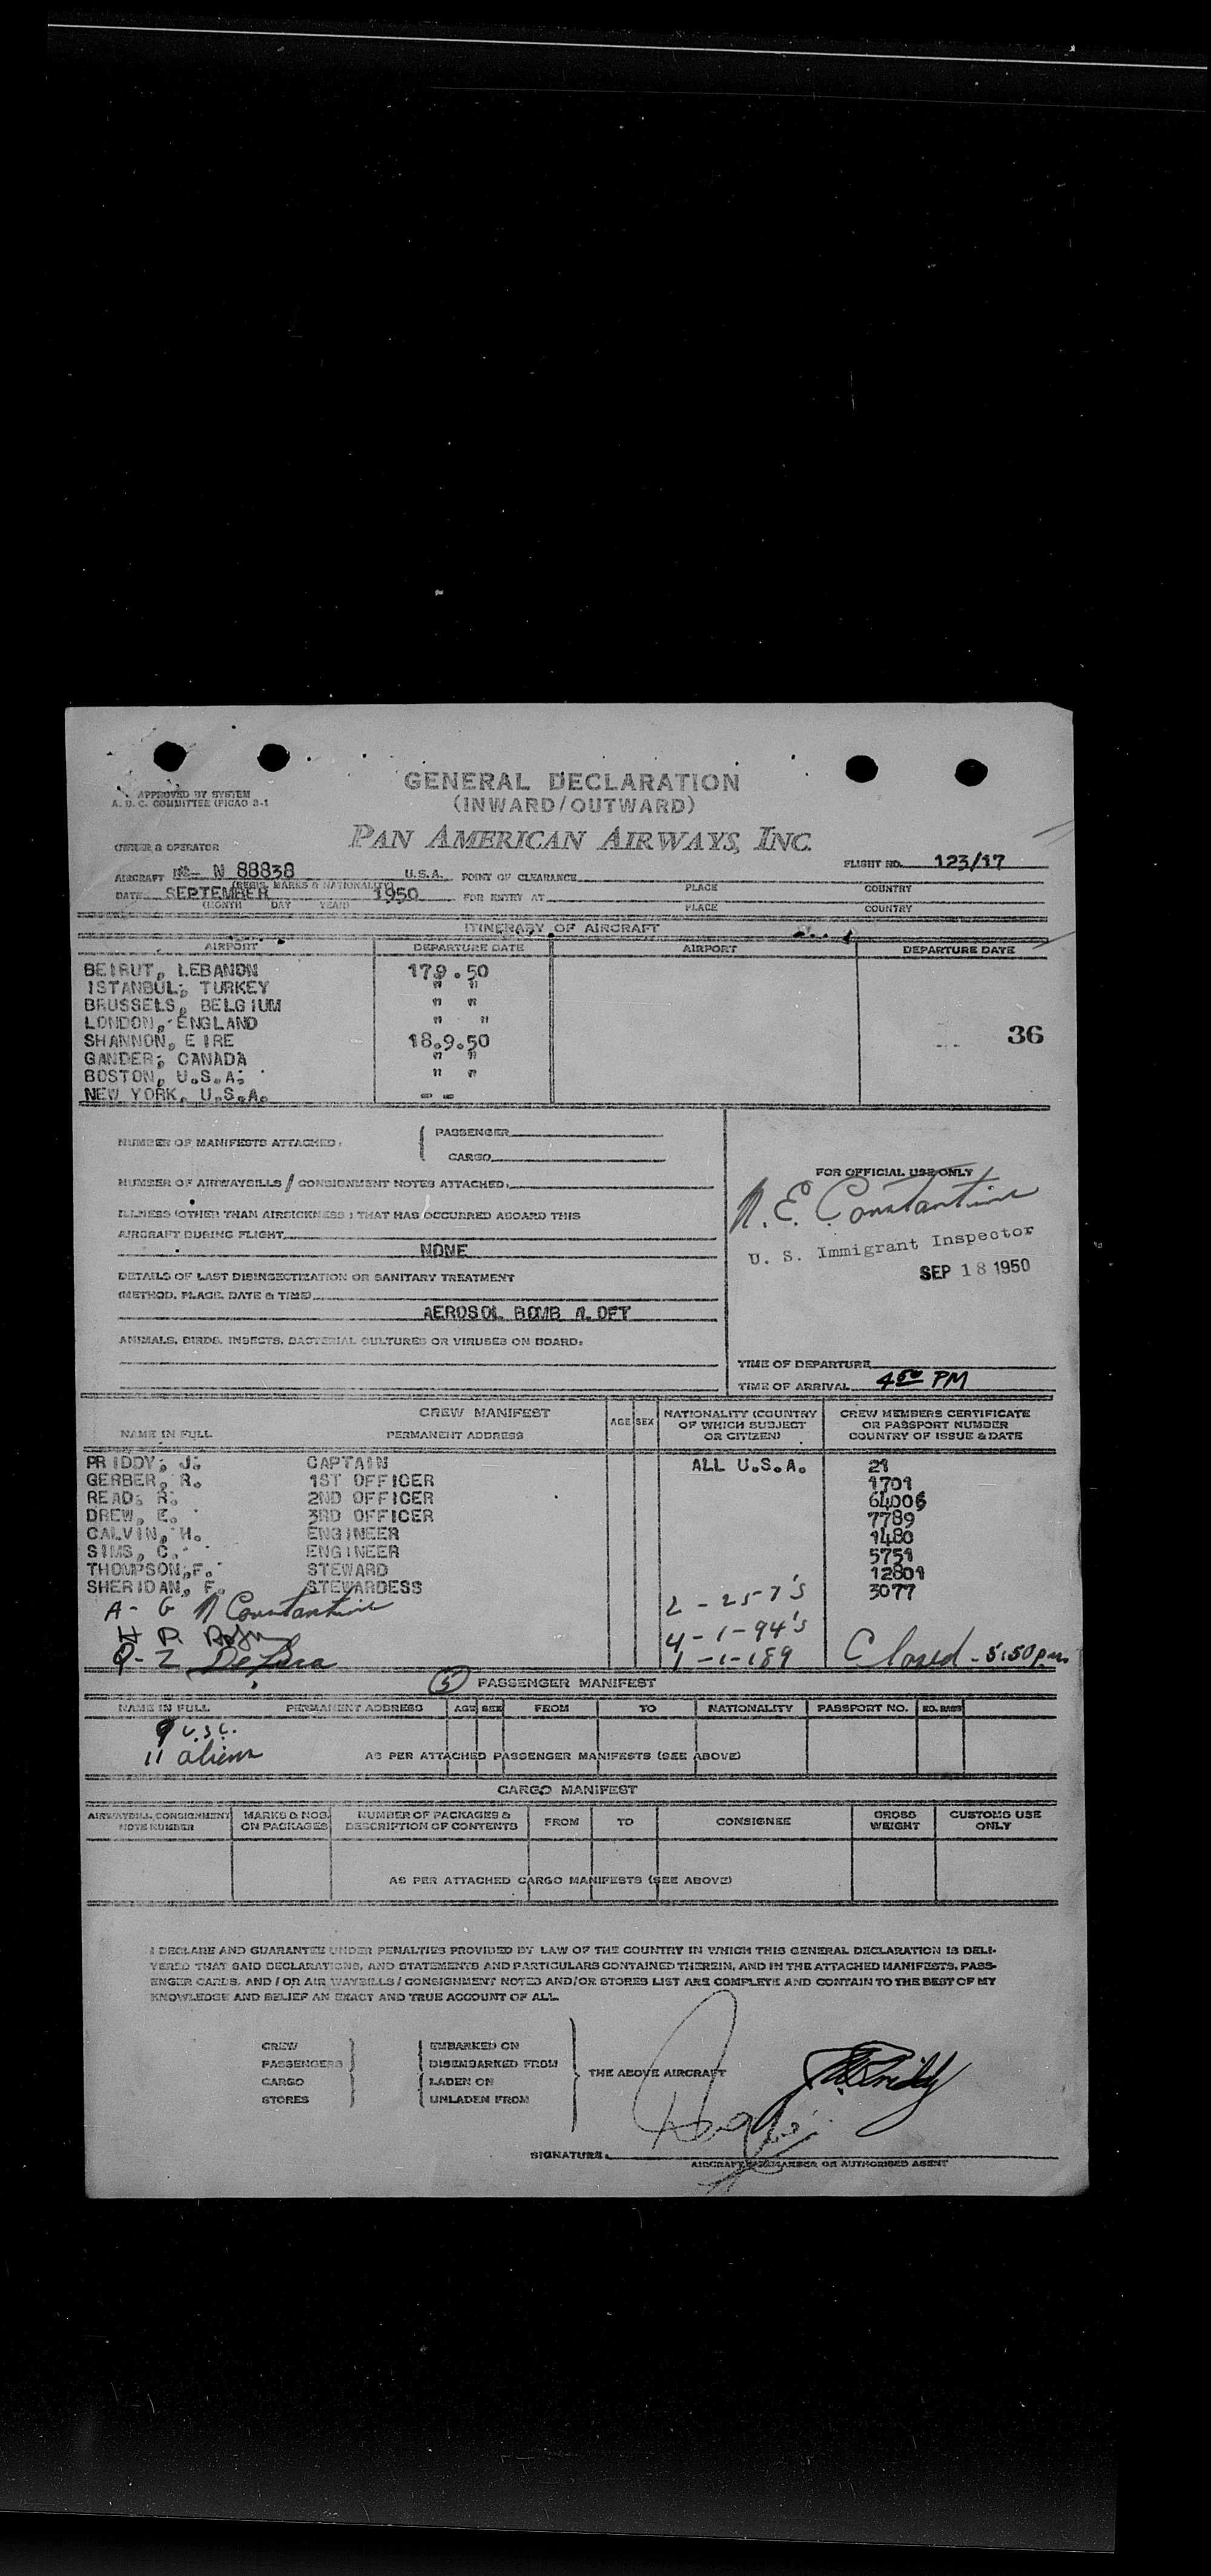 GENERAL DECLARATION
(INWARD/OUTWARD)
APPROVED BY SYSTEM
A. D. C. COMMITTEE (PICAO 3-1
PAN AMERICAN AIRWAYS, INC.
OWNER & OPERATOR
FLIGHT NO. 123/17
AIRCRAFT N 88838 U.S.A. POINT OF CLEARANCE
(REGIS. MARKS & NATIONALITY) PLACE COUNTRY
DATE SEPTEMBER 1950 FOR ENTRY AT
(MONTH DAY YEAR) PLACE COUNTRY
ITINERARY OF AIRCRAFT
AIRPORT DEPARTURE DATE AIRPORT DEPARTURE DATE
BEIRUT, LEBANON 179.50
ISTANBUL, TURKEY " "
BRUSSELS, BELGIUM " "
LONDON, ENGLAND " "
SHANNON, EIRE 18.9.50 36
GANDER, CANADA " "
BOSTON, U.S.A. " "
NEW YORK, U.S.A. - -
NUMBER OF MANIFESTS ATTACHED: PASSENGER
CARGO
NUMBER OF AIRWAYBILLS / CONSIGNMENT NOTES ATTACHED:
ILLNESS (OTHER THAN AIRSICKNESS) THAT HAS OCCURRED ABOARD THIS
AIRCRAFT DURING FLIGHT
NONE
DETAILS OF LAST DISINSECTIZATION OR SANITARY TREATMENT
(METHOD, PLACE, DATE & TIME)
AEROSOL BOMB ALOFT
ANIMALS, BIRDS, INSECTS, BACTERIAL CULTURES OR VIRUSES ON BOARD:
FOR OFFICIAL USE ONLY
N. E. Constantine
U. S. Immigrant Inspector
SEP 18 1950
TIME OF DEPARTURE
TIME OF ARRIVAL 4 50 PM
CREW MANIFEST
NAME IN FULL PERMANENT ADDRESS AGE SEX NATIONALITY (COUNTRY OF WHICH SUBJECT OR CITIZEN) CREW MEMBERS CERTIFICATE OR PASSPORT NUMBER COUNTRY OF ISSUE & DATE
PRIDDY, J. CAPTAIN ALL U.S.A. 21
GERBER, R. 1ST OFFICER 1701
READ, R. 2ND OFFICER 64006
DREW, E. 3RD OFFICER 7789
CALVIN, H. ENGINEER 1480
SIMS, C. ENGINEER 5751
THOMPSON, F. STEWARD 12801
SHERIDAN, F. STEWARDESS 3077
A - G N Constantine 2 - 257's
H P. 4 - 1-94's
Q - Z 1 - I-189 Closed - 5:50 pm
5 PASSENGER MANIFEST
NAME IN FULL PERMANENT ADDRESS AGE SEX FROM TO NATIONALITY PASSPORT NO.
9 U.S.C.
11 aliens AS PER ATTACHED PASSENGER MANIFESTS (SEE ABOVE)
CARGO MANIFEST
AIRWAYBILL, CONSIGNMENT NOTE NUMBER MARKS & NOS. ON PACKAGES NUMBER OF PACKAGES & DESCRIPTION OF CONTENTS FROM TO CONSIGNEE GROSS WEIGHT CUSTOMS USE ONLY
AS PER ATTACHED CARGO MANIFESTS (SEE ABOVE)
I DECLARE AND GUARANTEE UNDER PENALTIES PROVIDED BY LAW OF THE COUNTRY IN WHICH THIS GENERAL DECLARATION IS DELI-
VERED THAT SAID DECLARATIONS, AND STATEMENTS AND PARTICULARS CONTAINED THEREIN, AND IN THE ATTACHED MANIFESTS, PASS-
ENGER CARDS, AND / OR AIR WAYBILLS / CONSIGNMENT NOTES AND/OR STORES LIST ARE COMPLETE AND CONTAIN TO THE BEST OF MY
KNOWLEDGE AND BELIEF AN EXACT AND TRUE ACCOUNT OF ALL.
CREW EMBARKED ON
PASSENGERS DISEMBARKED FROM THE ABOVE AIRCRAFT
CARGO LADEN ON
STORES UNLADEN FROM
Priddy
SIGNATURE
AIRCRAFT COMMANDER OR AUTHORISED AGENT